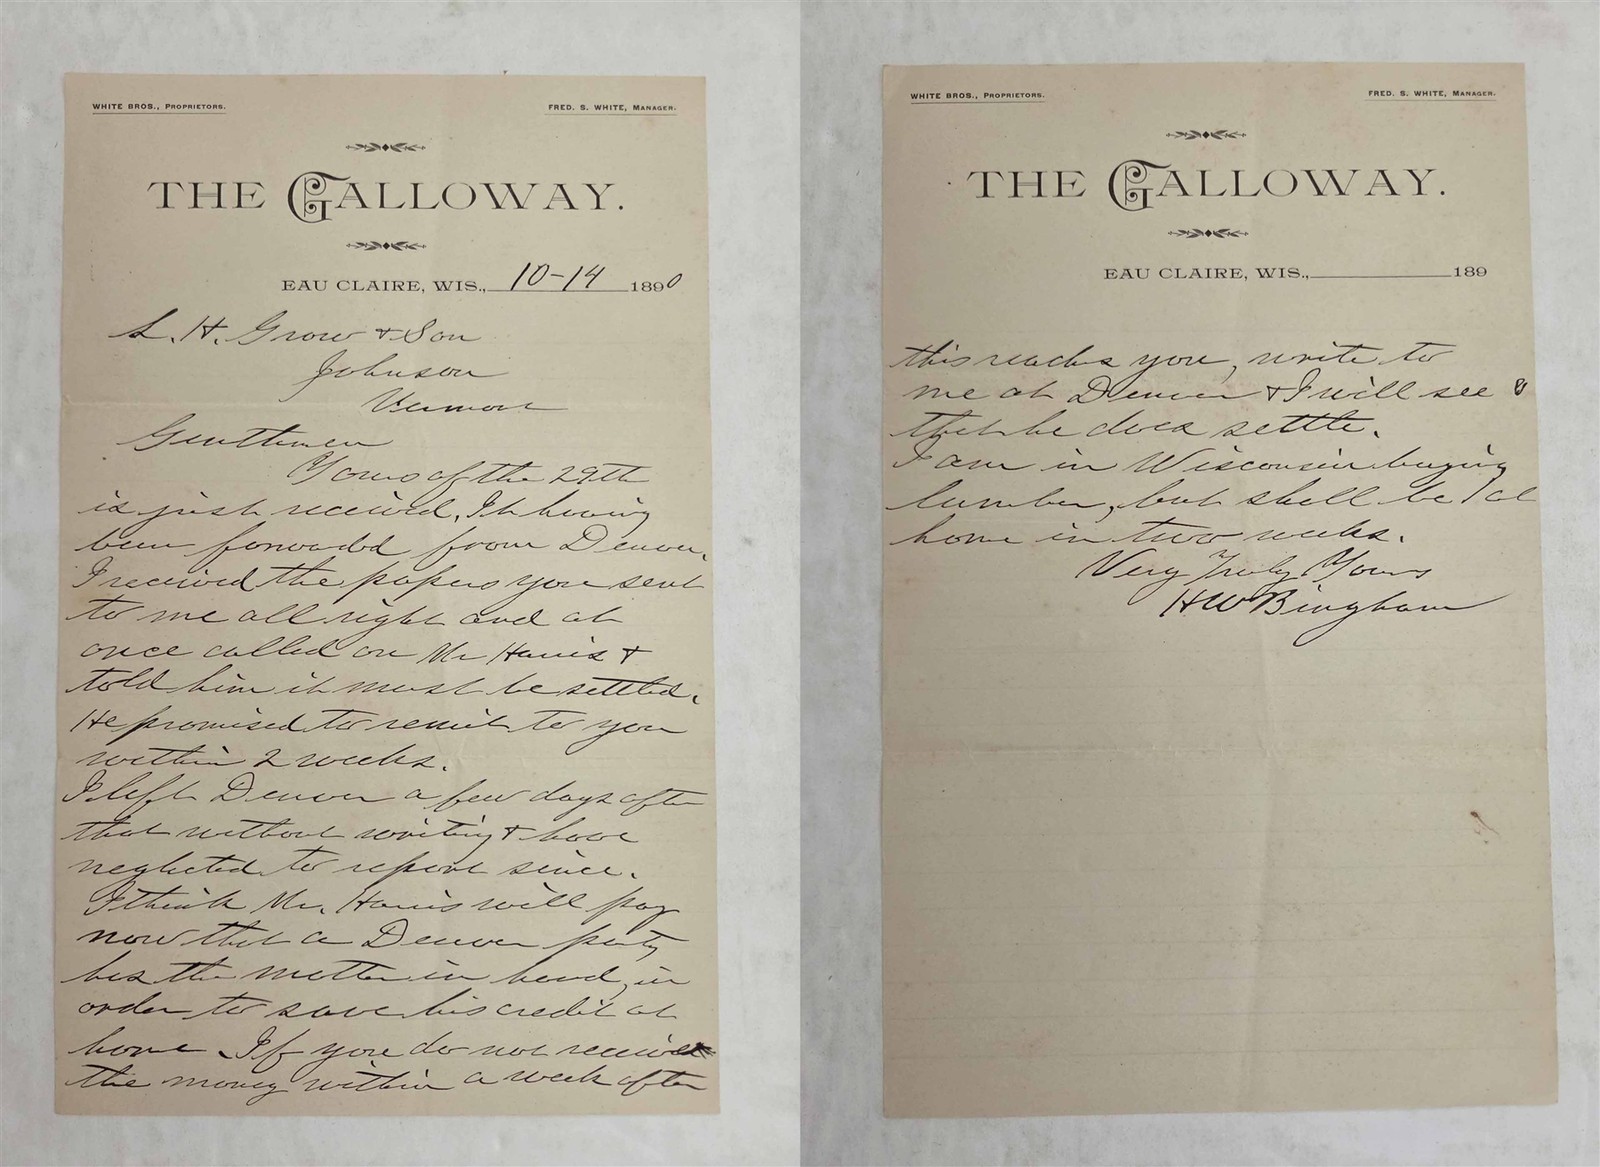 WHITE BROS., PROPRIETORS.
FRED. S. WHITE, MANAGER.
THE GALLOWAY.
EAU CLAIRE, WIS., 10-14 1890
L. H. Grow & Son
Johnson
Vermont
Gentlemen
Yours of the 29th
is just received, It having
been forwaded from Denver.
I received the papers you sent
to me all right and at
once called on Mr Harris &
told him it must be settled.
He promised to remit to you
within 2 weeks.
I left Denver a few days after
that without writing & have
neglected to report since.
I think Mr. Harris will pay
now that a Denver party
has the matter in hand, in
order to save his credit at
home. If you do not receive
the money within a week after
WHITE BROS., PROPRIETORS.
FRED. S. WHITE, MANAGER.
THE GALLOWAY.
EAU CLAIRE, WIS., 189
this reaches you, write to
me at Denver & I will see
that he does settle.
I am in Wisconsin buying
lumber, but shall be at
home in two weeks.
Very Truly Yours
HW Bingham